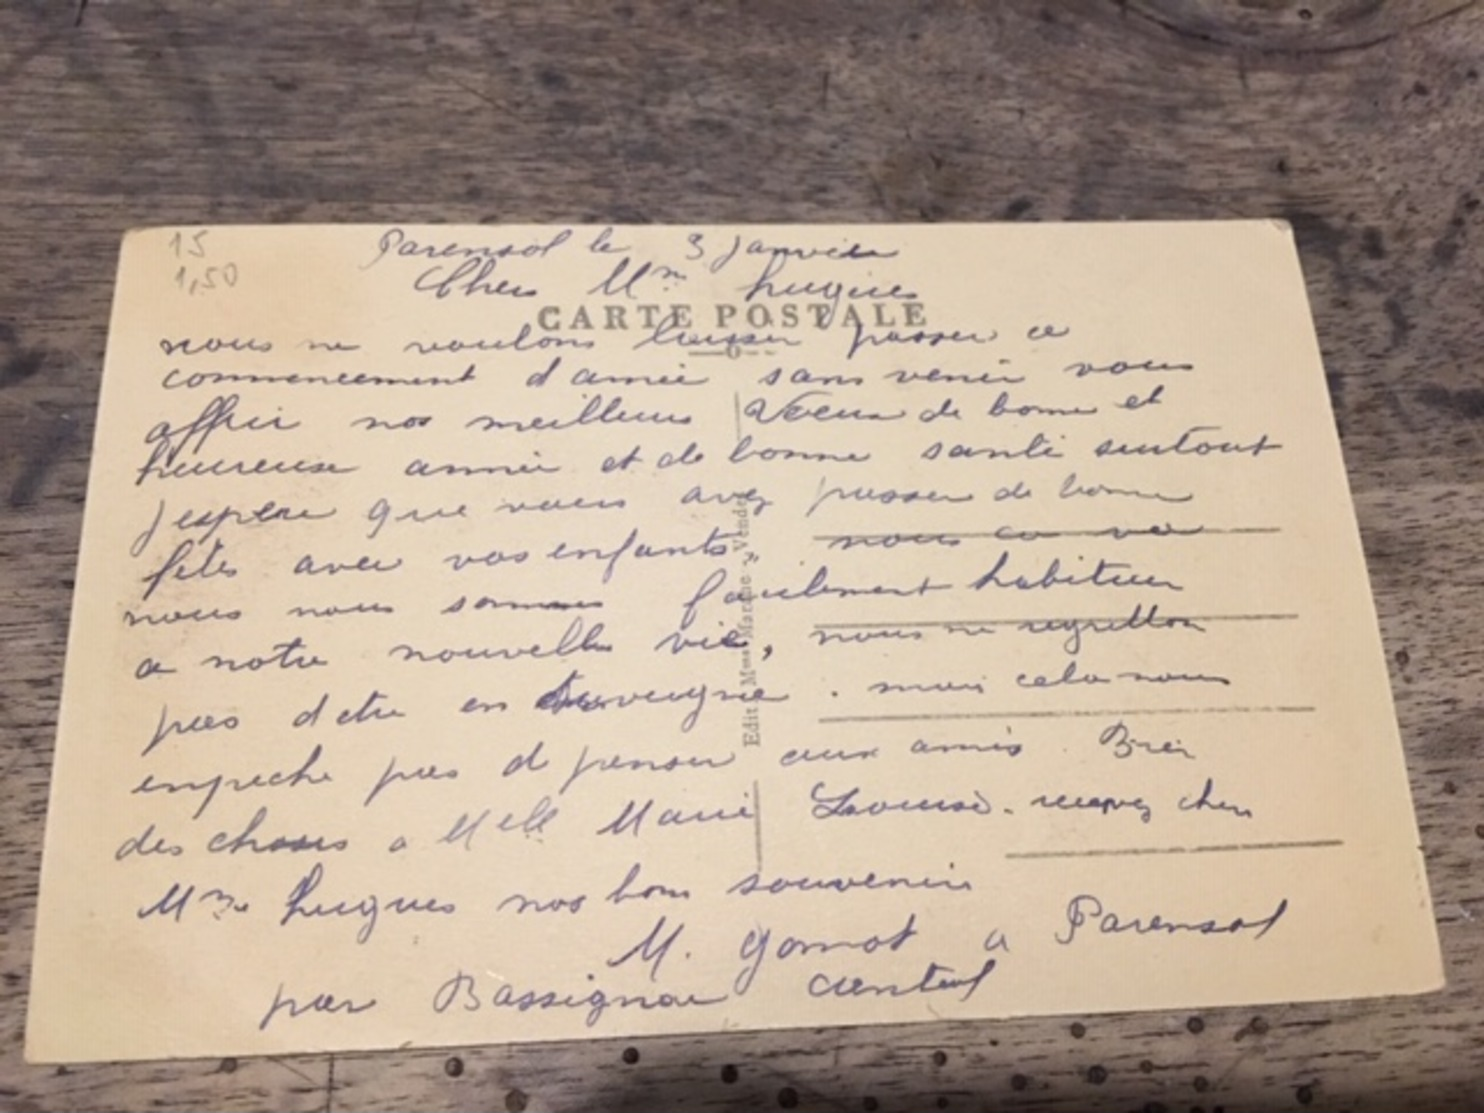 15
1,50
Parensol le 3 Janvier
Cher Mme Hugues
CARTE POSTALE
nous ne voulons laisser passer ce
commencement d année sans venir vous
offrir nos meilleurs Voeux de bonne et
heureuse année et de bonne santé surtout
J espère que vous avez passer de bonne
fêtes avec vos enfants, nous ca va
nous nous sommes facilement habituer
a notre nouvelle vie, nous ne regrettons
pas d etre en Auvergne. mais cela nous
empeche pas d penser aux amis. Bien
des choses a Melle Marie Louise. recevez cher
Mme Hugues nos bons souvenirs
M. Gomot a Parensol
par Bassignac
Edit. Marche - Vende